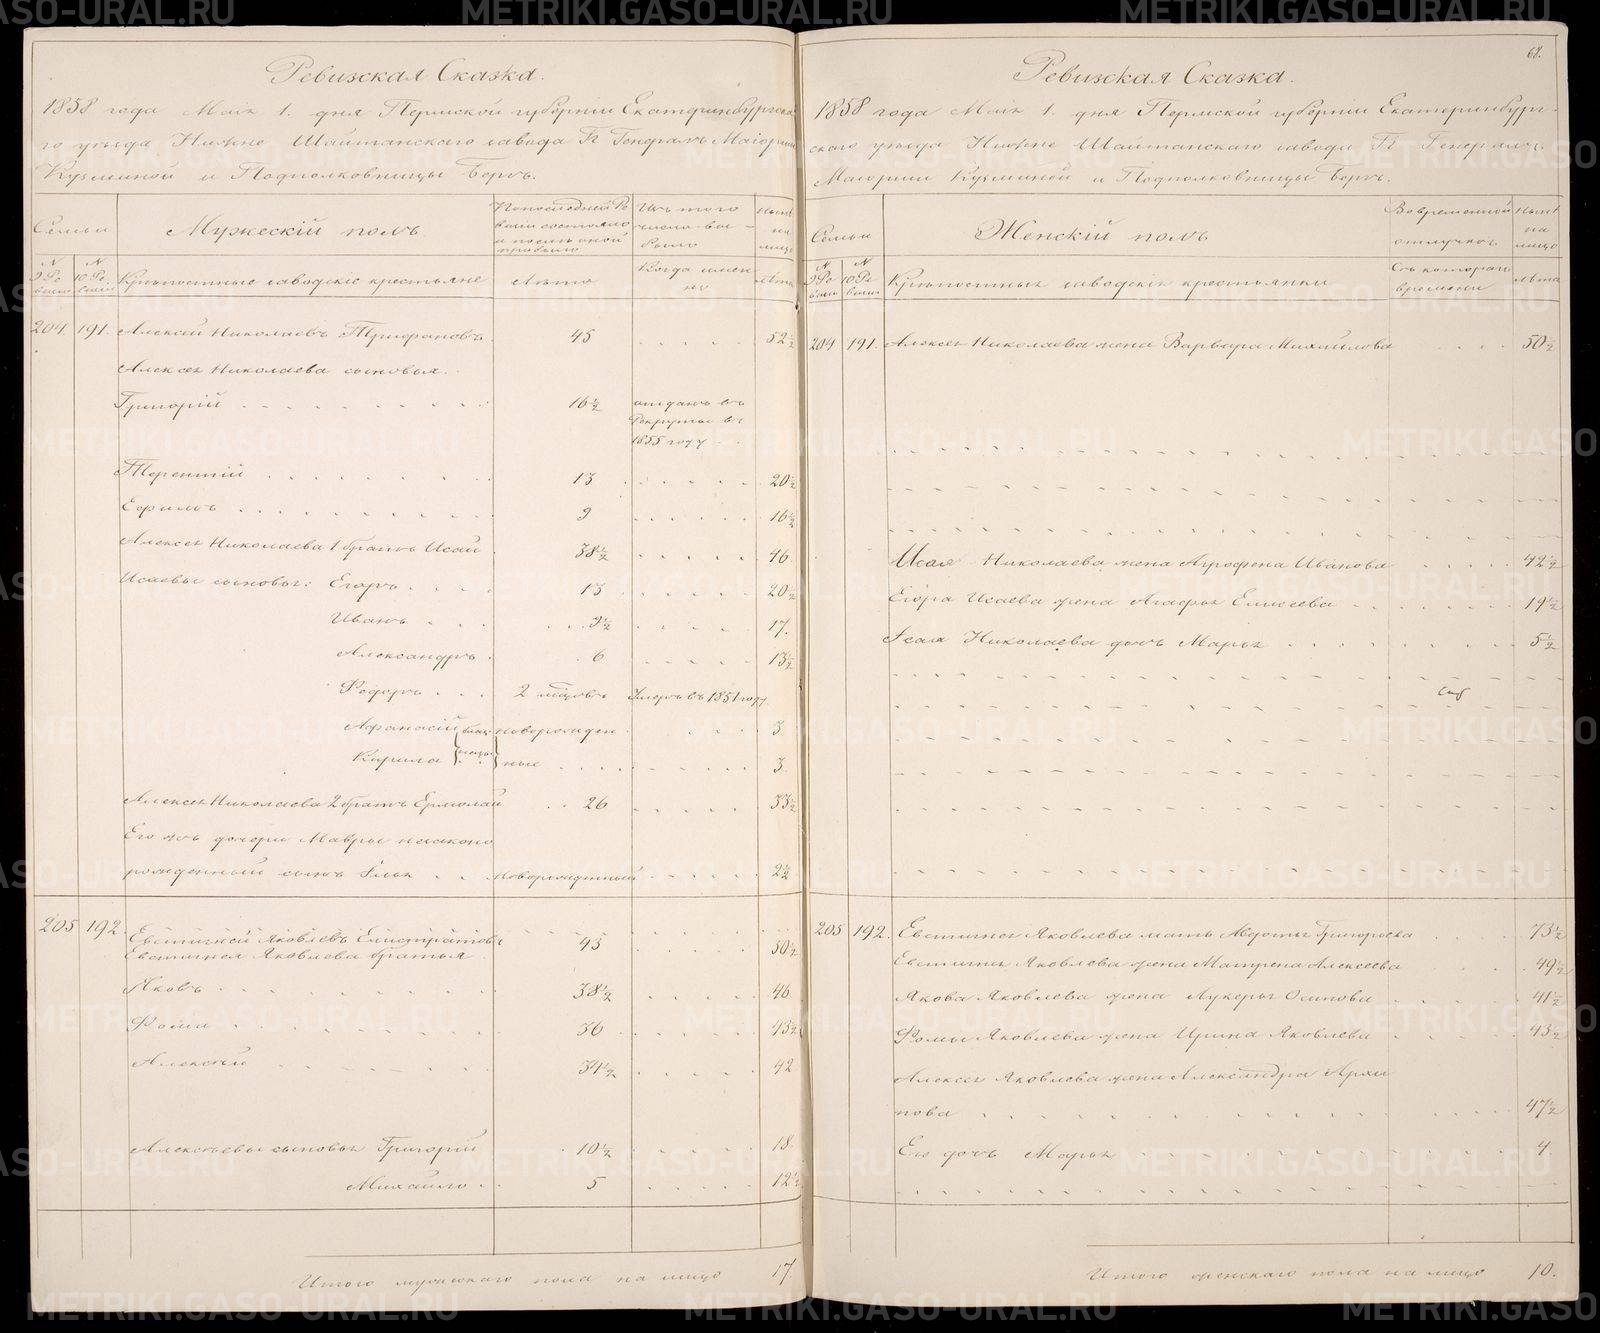 Ревизская Сказка.
1858 года Маія 1. дня Пермской губерніи Екатеринбургска-
го уѣзда Нижне Шайтанскаго завода Гг Генералъ Маіорши
Кузьминой и Подполковницы Бергъ.
Семьи
Мужескій полъ
По последней Ре
визіи состояло
и после оной
прибыло
Изъ того
числа вы-
было
Нынѣ
на
лицо
N
9 Ре
визіи
N
10 Ре
визіи
Крѣпостные заводскіе крестьяне
Лѣта
Когда имен
но
Лѣта
204. 191. Алексѣй Николаевъ Трифановъ 45 52½
Алексея Николаева сыновья.
Григорій 16½ отданъ въ
Рекруты въ
1855 году
Терентій 13 20½
Ефимъ 9 16½
Алексея Николаева 1 братъ Исай 38½ 46
Исаевы сыновья: Егоръ 13 20½
Иванъ 9½ 17.
Александръ 6 13½
Федоръ 2 мѣсъ Умеръ въ 1851 году
Афанасій близ- новорожден 3
Кирила нецы ные 3
Алексея Николаева 2 братъ Ермолай 26 33½
Его же дочери Мавры незаконо
рожденный сынъ Илья Новорожденный 2½
205 192. Евстигней Яковлевъ Елистратовъ 43 50½
Евстигнея Яковлева братья
Яковъ 38½ 46
Фома 36 43½
Алексѣй 34½ 42
Алексѣевы сыновья Григорій 10½ 18.
Михайло 5 12½
Итого мужескаго пола на лицо 17.
68.
Ревизская Сказка.
1858 года Маія 1. дня Пермской губерніи Екатеринбург-
скаго уѣзда Нижне Шайтанскаго завода Гг Генералъ
Маіорши Кузьминой и Подполковницы Бергъ.
Семьи
Женскій полъ
Во временной
отлучкѣ
Нынѣ
на
лицо
N
9 Ре
визіи
N
10 Ре
визіи
Крѣпостныя заводскія крестьянки
Съ котораго
времени
лѣта
204 191. Алексея Николаева жена Варвара Михайлова 50½
Исая Николаева жена Агрофена Иванова 42½
Егора Исаева жена Агафья Елисеева 19½
Исая Николаева дочь Марья 5½
205 192. Евстигнея Яковлева мать Авдотья Григорьева 73½
Евстигнея Яковлева жена Матрена Алексеева 49½
Якова Яковлева жена Лукерья Осипова 41½
Фомы Яковлева жена Ирина Яковлева 43½
Алексея Яковлева жена Александра Архи
пова 47½
Его дочь Марья 4.
Итого женскаго пола на лицо 10.
METRIKI.GASO-URAL.RU